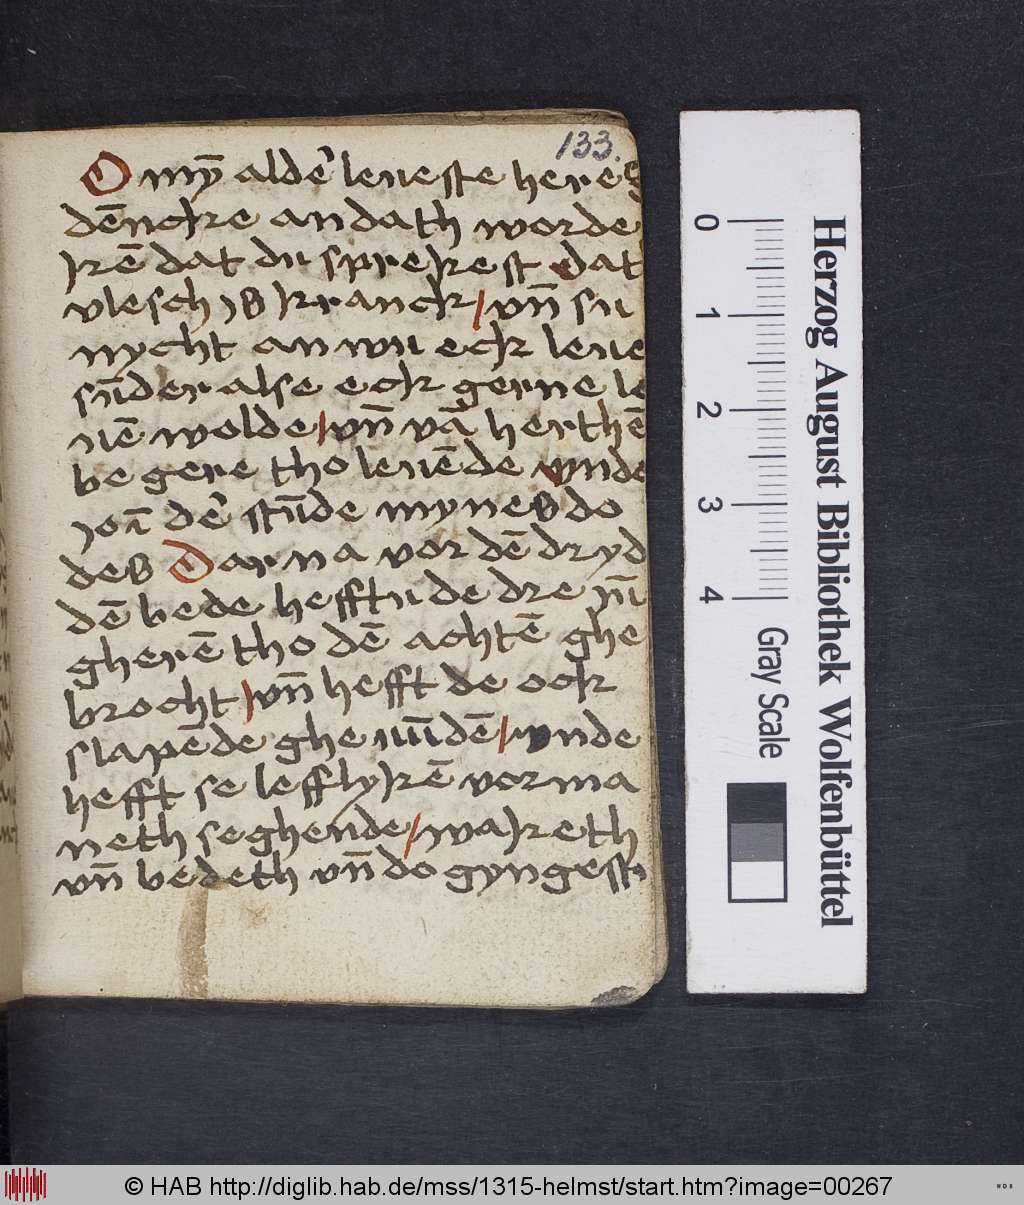 133.
O mȳ alder leueste here
dēncke an dath worde
kē dat du sprekest dat
vlesch is kranck / vn̄ sū
nycht an wu eck leue
sūder alse eck gerne le
uē wolde / vn̄ vā herthē
begere tho leuēde vnde
io ī der stūde mynes do
des Darna vor dē dryd
dē bede hefftu de dre iū
gherē tho dē achtē ghe
brocht / vn̄ hefft de ock
slapēde ghe vūdē / vnde
hefft se lefflykē vorma
neth seghende / waketh
vn̄ bedeth vn̄ do gyngestu
0 1 2 3 4
Gray Scale
Herzog August Bibliothek Wolfenbüttel
© HAB http://diglib.hab.de/mss/1315-helmst/start.htm?image=00267